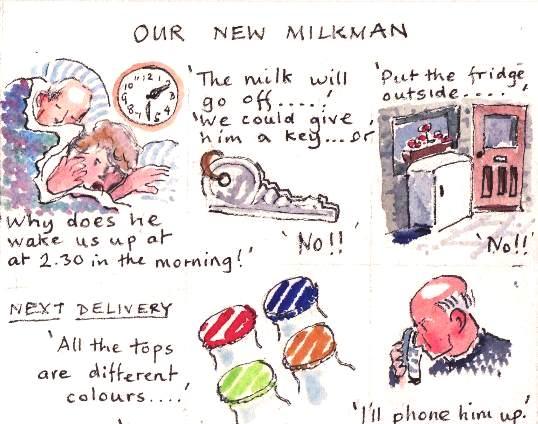 OUR NEW MILKMAN
Why does he
wake us up at
at 2.30 in the morning!'
'The milk will
go off.....!'
'We could give
him a key...or
'No!!'
'Put the fridge
outside.....'
'No!!'
NEXT DELIVERY
'All the tops
are different
colours....'
'I'll phone him up.'